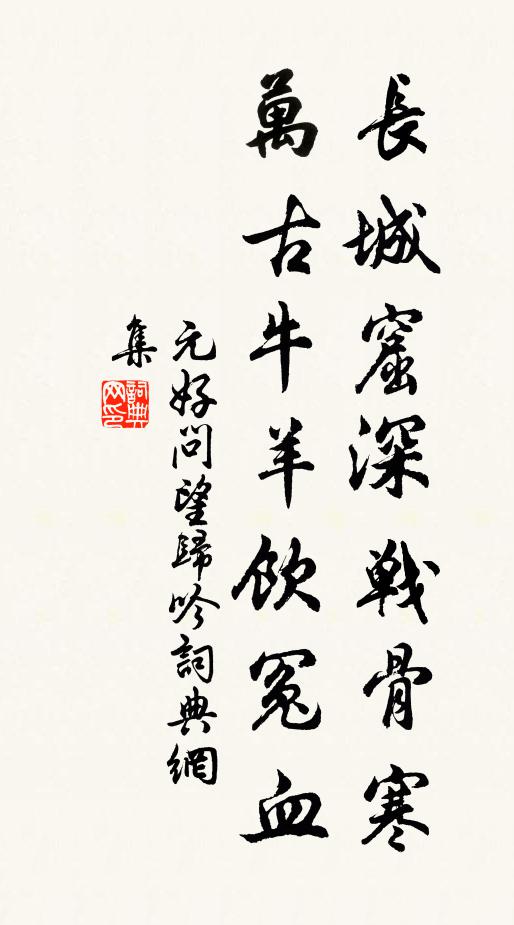 長城窟深戰骨寒
萬古牛羊飲冤血
元好問望歸吟詞典網
集
詞典
網印